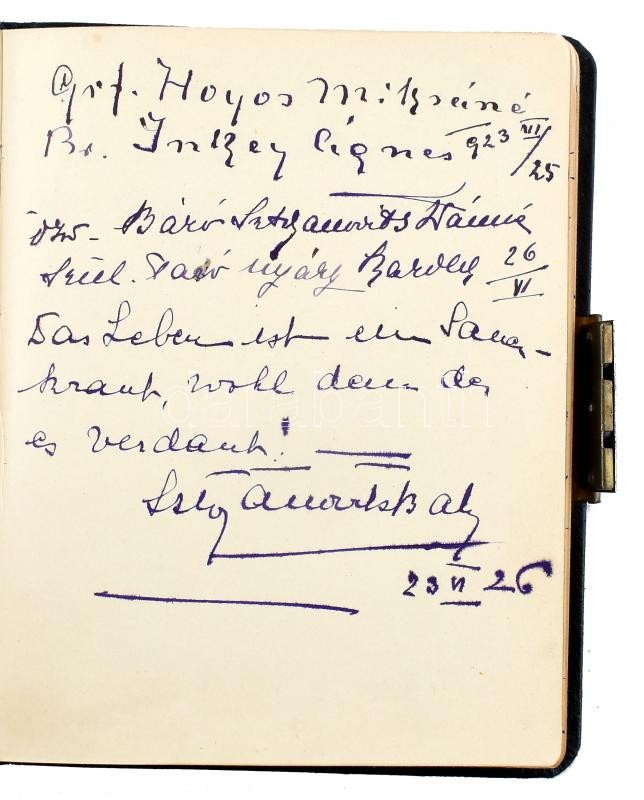 Grf. Hoyos Miksáné
Br. Inkey Ágnes 923 VII/25
özv. Báró Sztojanovits
Szül. Karoly 26/VI
Das Leben ist ein Sauer-
kraut, wohl dem der
es verdaut!
Sztojanovits
23 VI 26
darabanth